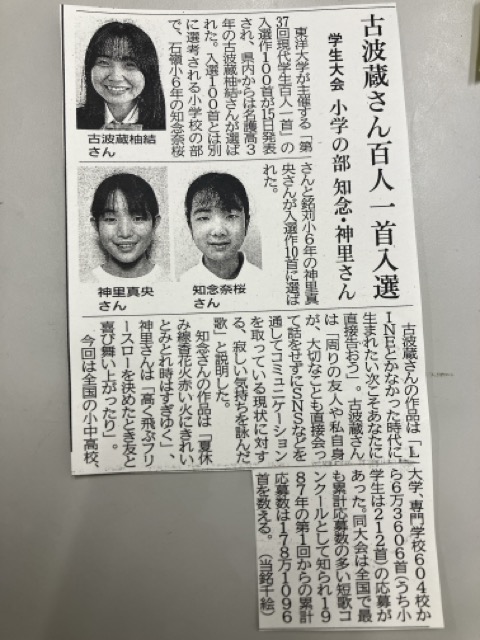 古波蔵さん百人一首入選
学生大会 小学の部 知念・神里さん
東洋大学が主催する「第
37回現代学生百人一首」の
入選作100首が15日発表
され、県内からは名護高3
年の古波蔵柚結さんが選ば
れた。入選100首とは別
に選考される小学校の部
で、石嶺小6年の知念奈桜
さんと銘苅小6年の神里真
央さんが入選作10首に選ば
れた。
古波蔵柚結
さん
神里真央
さん
知念奈桜
さん
古波蔵さんの作品は「L
INEとかなかった時代に
生まれたい次こそあなたに
直接告おう」。古波蔵さん
は「周りの友人や私自身
が、大切なことも直接会っ
て話をせずにSNSなどを
通してコミュニケーション
を取っている現状に対す
る、寂しい気持ちを詠んだ
歌」と説明した。
知念さんの作品は「夏休
み線香花火赤い火にきれい
とみとれ時はすぎゆく」、
神里さんは「高く飛ぶフリ
ースローを決めたとき友と
喜び舞い上がったり」。
今回は全国の小中高校、
大学、専門学校604校か
ら6万3606首(うち小
学生は212首)の応募が
あった。同大会は全国で最
も累計応募数の多い短歌コ
ンクールとして知られ、19
87年の第1回からの累計
応募数は178万1096
首を数える。(当銘千絵)